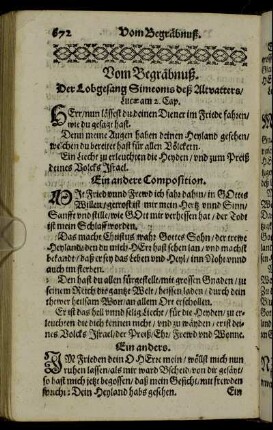 672 Vom Begräbnuß.
Vom Begräbnuß.
Der Lobgesang Simeonis deß Altvatters,
Lucæ am 2. Cap.
HErr/nun lässest du deinen Diener im Friede fahren/
wie du gesagt hast.
Denn meine Augen haben deinen Heyland gesehen/
welchen du bereitet hast für allen Völckern.
Ein Liecht zu erleuchten die Heyden/vnd zum Preiß
deines Volcks Israel.
Ein andere Composition.
MIt Fried vnnd Frewd ich fahr dahin/ in GOttes
Willen/getrost ist mir mein Hertz vnnd Sinn/
Sanfft vnd stille/wie GOtt mir verheissen hat / der Todt
ist mein Schlaff worden.
Das macht Christus wahr Gottes Sohn/der trewe
Heyland/den du mich HErr hast sehen lan/ vnd machst
bekandt/daß er sey das Leben vnd Heyl/ inn Noht vnnd
auch im sterben.
Den hast du allen fürgestellt/mit grossen Gnaden / zu
seinem Reich die gantze Welt/ heissen laden / durch dein
thewer heilsam Wort/an allem Ort erschollen.
Er ist das heil vnnd selig Liecht/ für die Heyden/ zu er-
leuchten die dich kennen nicht / vnd zu wäyden/ er ist dei-
nes Volcks Israel/der Preiß/Ehr/ Frewd vnd Wonne.
Ein anders.
IM Frieden dein O HErre mein / wöllst mich nun
ruhen lassen/als mir ward Bscheid/von dir gesant/
so hast mich jetzt begossen/daß mein Gesicht/mit frewden
Dein Heyland habs gesehen. Ein